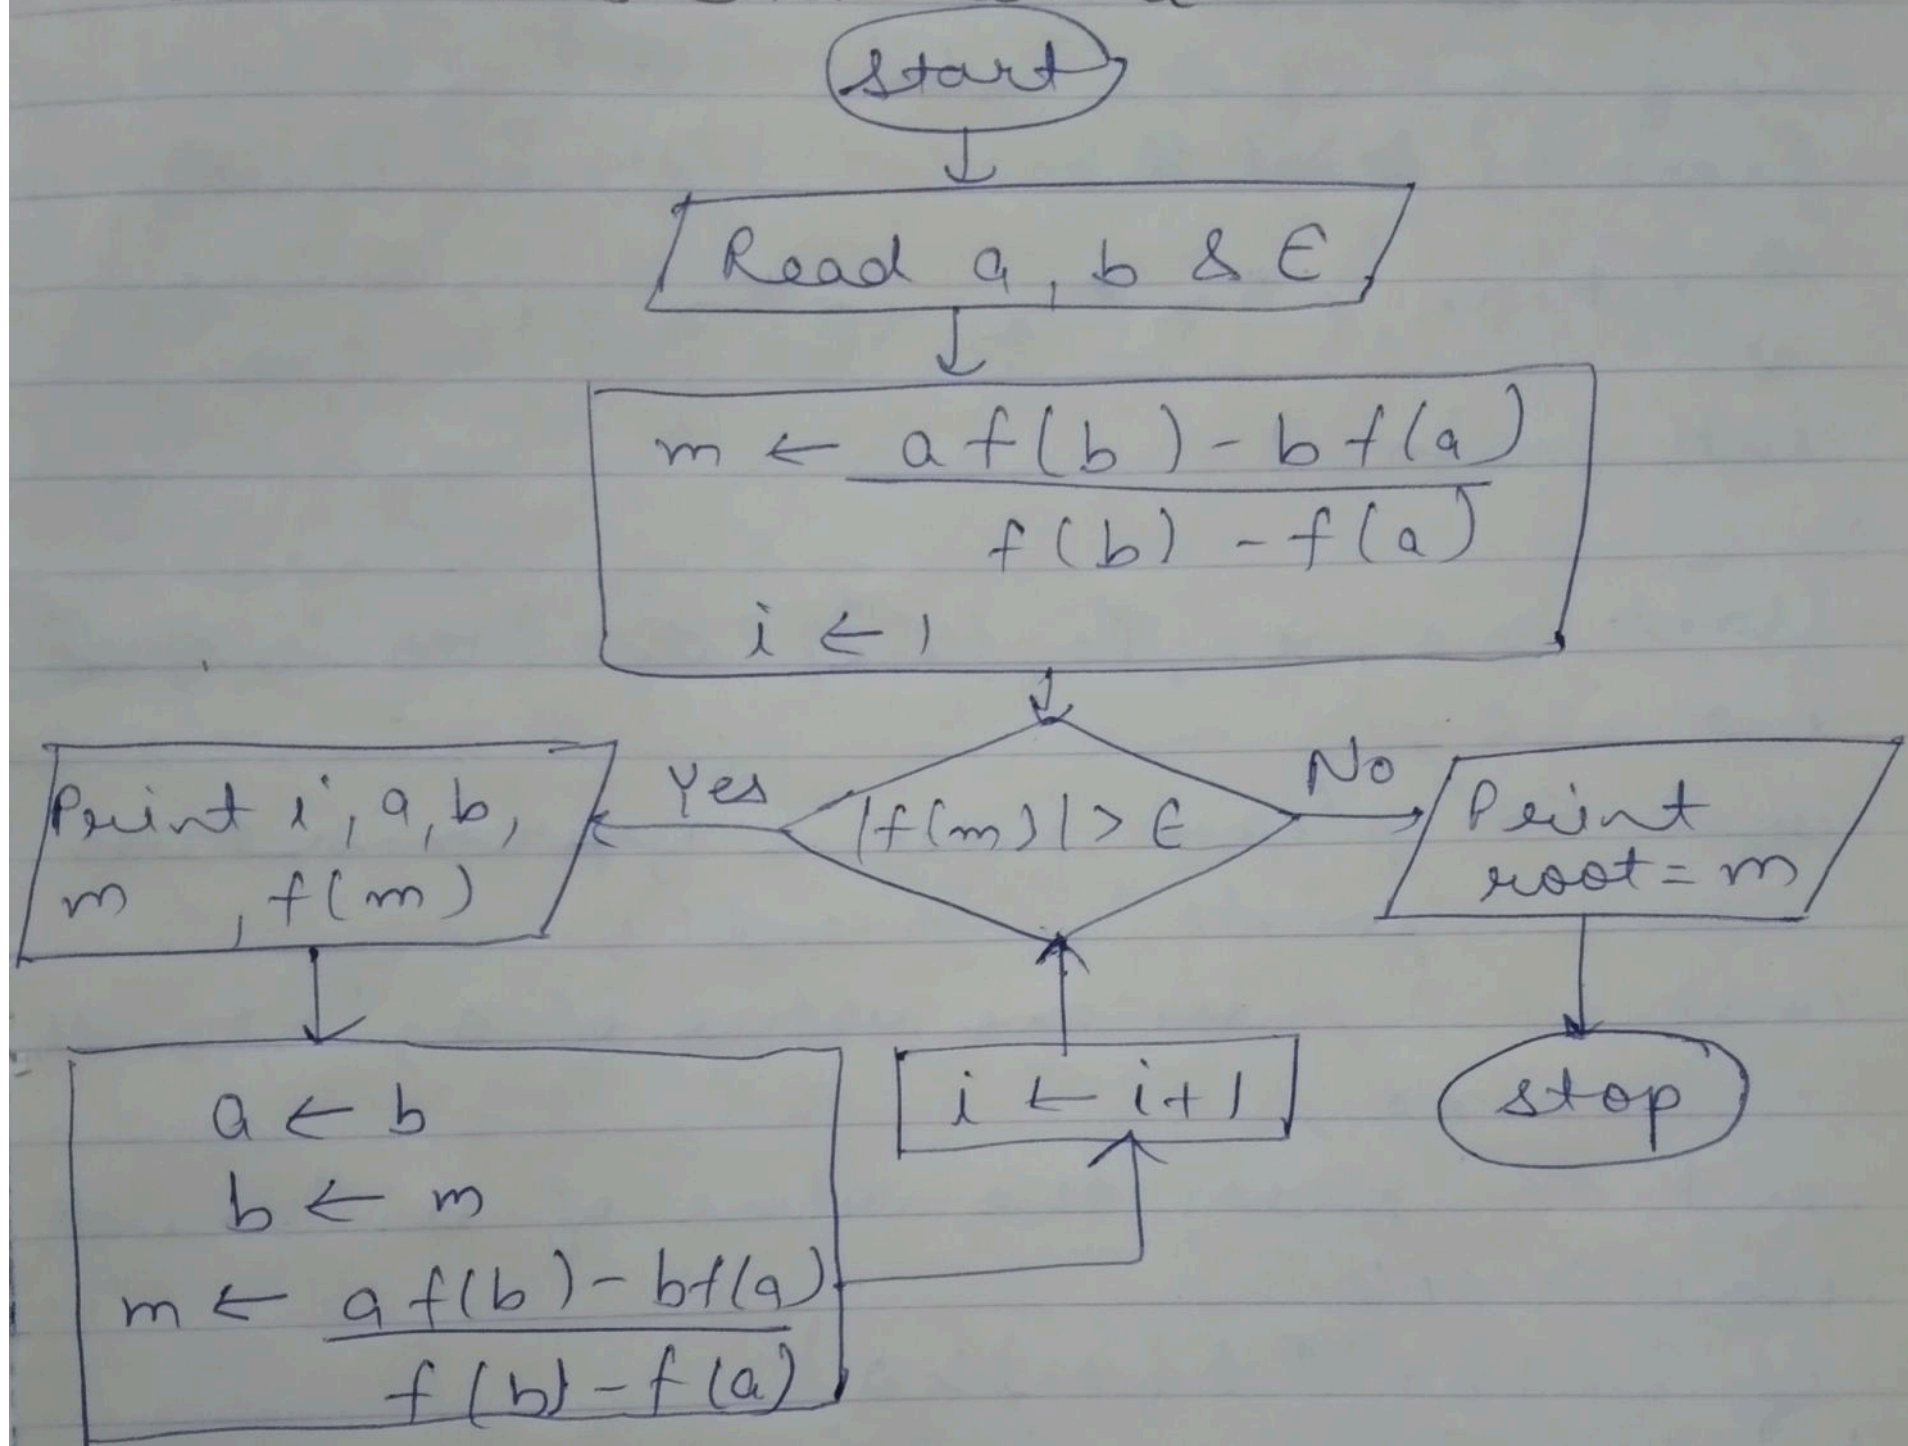 Start
Read a, b & ∈
m ← a f(b) - b f(a)
f(b) - f(a)
i ← 1
|f(m)| > ∈
Yes
No
Print i, a, b,
m , f(m)
Print
root = m
a ← b
b ← m
m ← a f(b) - b f(a)
f(b) - f(a)
i ← i+1
stop